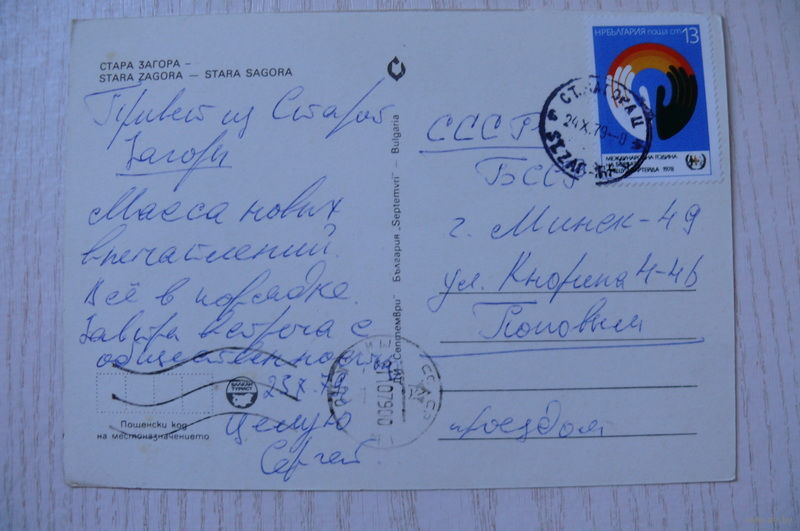 СТАРА ЗАГОРА –
STARA ZAGORA – STARA SAGORA
Привет из Старой
Загоры
Масса новых
впечатлений.
Всё в порядке.
Завтра встреча с
общественностью.
23.X.79
Целую
Сергей.
Пощенски код
на местоназначението
БАЛКАН
ТУРИСТ
ДИ „Септември" България „Septemvri" – Bulgaria
НР БЪЛГАРИЯ ПОЩА СТ. 13
МЕЖДУНАРОДНА ГОДИНА
1978
24.X.79
СССР
БССР
г. Минск-49
ул. Кнорина 4-46
Поповым
проездом